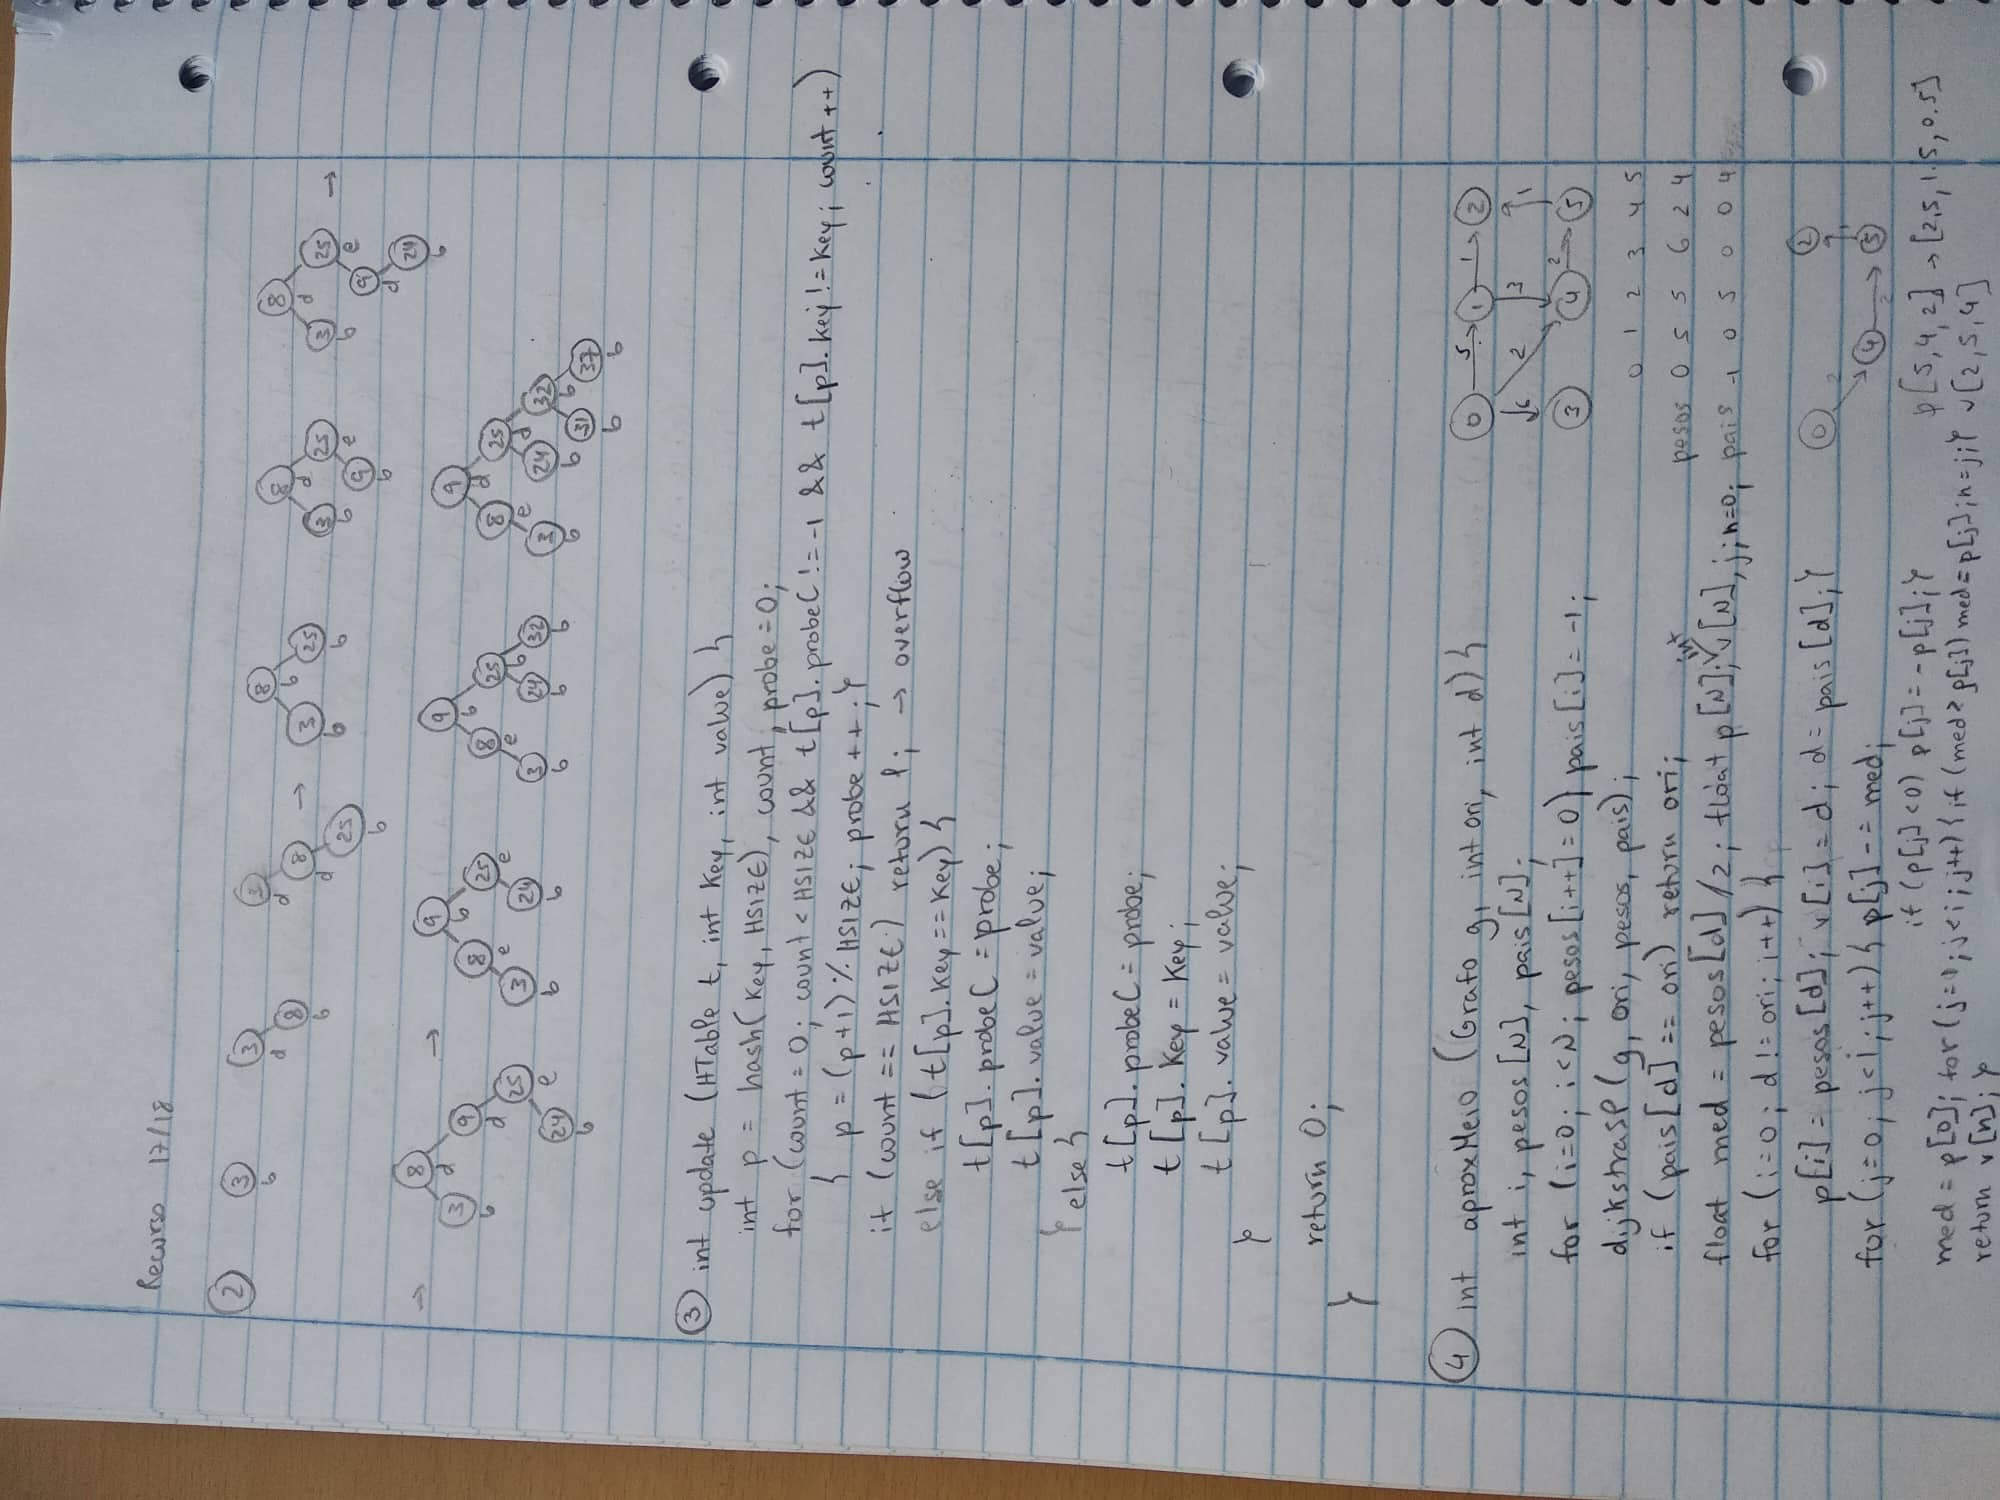 Recurso 17/18
②
3 b
3 d 8 b
3 d 8 d 25 b →
8 b 3 b 25 b
8 d 3 b 25 e 9 b
8 d 3 b 25 e 9 d 24 b →
→ 8 d 3 b 9 d 25 e 24 b →
9 b 8 e 3 b 25 e 24 b
9 b 8 e 3 b 25 b 24 b 32 b
9 d 8 e 3 b 25 d 24 b 32 b 31 b 37 b
③ int update (HTable t, int key, int value) {
int p = hash(key, HSIZE), count, probe=0;
for (count=0; count<HSIZE && t[p].probeC!=-1 && t[p].key!=key; count++)
{ p=(p+1)%HSIZE; probe++; }
if (count == HSIZE) return 1; → overflow
else if (t[p].key==key) {
t[p].probeC = probe;
t[p].value=value;
} else {
t[p].probeC=probe;
t[p].key=key;
t[p].value=value;
}
return 0;
}
④ int aproxMeio (Grafo g, int ori, int d) {
int i, pesos[N], pais[N];
for (i=0; i<N; pesos[i++]=0) pais[i]=-1;
dijkstraSP(g, ori, pesos, pais);
if (pais[d]==ori) return ori;
float med = pesos[d]/2; float p[N]; int v[N], j, n=0;
for (i=0; d!=ori; i++) {
p[i] = pesos[d]; v[i]=d; d=pais[d]; }
for (j=0; j<i; j++) { p[j]-=med;
if (p[j]<0) p[j]=-p[j]; }
med=p[0]; for (j=1; j<i; j++) { if (med>p[j]) med=p[j]; n=j; }
return v[n]; }
0 5 1 1 2
6 2 3 1
3 4 2 5
0 1 2 3 4 5
pesos 0 5 5 6 2 4
pais -1 0 5 0 0 4
0 2 4 2 5 1 2
p[5,4,2] → [2.5,1.5,0.5]
v[2,5,4]